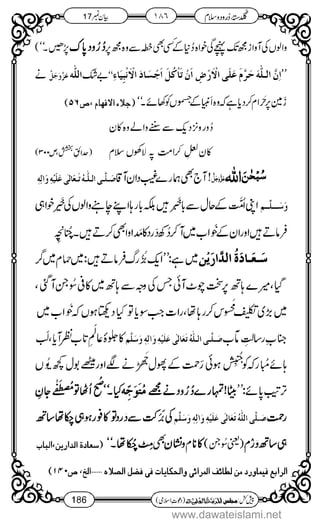 گلدستہ دُرُودوسلام ١٨٦ بیان نمبر 17
والوں کی آواز مجھ تک پہنچے گی خواہ دنیا کے کسی بھی خطہ سے وہ مجھ پر دُرُودِ پاک پڑھیں۔‘‘
’’اِنَّ اللّٰہَ حَرَّمَ عَلَی الْاَرْضِ اَنْ تَاْکُلَ اَجْسَادَ الْاَنْبِیَآءِ‘‘ بے شک اللّٰہ عَزَّوَجَلَّ نے
زمین پر حرام کر دیا ہے کہ وہ انبیا کے جسموں کو کھائے۔‘‘ (جلاء الافہام، ص٥٦)
دور و نزدیک کے سننے والے وہ کان
کانِ لعلِ کرامت پہ لاکھوں سلام (حدائقِ بخشش، ص٣٠٠)
سُبْحٰنَ اللہ عَزَّوَجَلَّ! آج بھی ہمارے غیب دان آقا صَلَّی اللہُ تَعَالٰی عَلَیْہِ وَاٰلِہٖ
وَسَلَّم اپنی اُمَّت کے حال سے باخبر ہیں بلکہ بارہا اپنے چاہنے والوں کی خبر گیری خواہی
فرماتے ہیں اور ان کے خواب میں آکر دکھ درد کا مداوا بھی کرتے ہیں۔ چنانچہ
سَعَادَۃُ الدَّارَیْن میں ہے: ’’ایک بزرگ فرماتے ہیں: میں حمام میں گر
گیا، میرے ہاتھ پر سخت چوٹ آئی جس کی وجہ سے ہاتھ میں کافی سوجن آ گئی،
میں بڑی تکلیف محسوس کر رہا تھا، رات جب سویا تو کیا دیکھتا ہوں کہ خواب میں
جنابِ رسالت مآب صَلَّی اللہُ تَعَالٰی عَلَیْہِ وَاٰلِہٖ وَسَلَّم کا جلوۂ عالَم تاب نظر آیا، لب
ہائے مبارکہ کو جنبش ہوئی، رحمت کے پھول جھڑنے لگے اور میٹھے بول کچھ یوں
ترتیب پائے: ’’بیٹا! تمہارے دُرُود نے مجھے مُتَوَجِّہ کیا۔‘‘ صبح اُٹھا تو مصطفٰی جانِ
رحمت صَلَّی اللہُ تَعَالٰی عَلَیْہِ وَاٰلِہٖ وَسَلَّم کی بَرَکت سے درد تو کافور ہو ہی چکا تھا ساتھ
ہی ساتھ وَرَم (یعنی سوجن) کا نام و نشان بھی مٹ چکا تھا۔‘‘ (سعادۃ الدارین، الباب
الرابع فیماورد من لطائف المرائی والحکایات فی فضل الصلاہ ....الخ، ص١٤٠)
186 پیش کش: مجلس المدینۃ العلمیۃ (دعوتِ اسلامی)
www.dawateislami.net